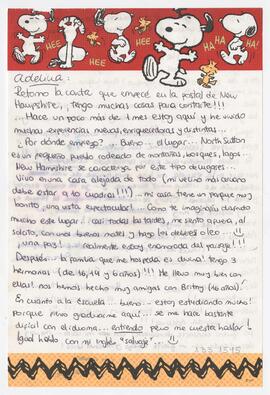 HEE
HEE
HEE
HA
HA
HA!
Adelina:
Retomo la carta que empecé en la postal de New
Hampshire, ¡tengo muchas cosas para contarte!!!
...Hace un poco más de 1 mes estoy aquí y he vivido
muchas experiencias nuevas, enriquecedoras y distintas...
¿Por dónde empiezo? ... Bueno... el lugar... North Sutton
es un pequeño pueblo rodeado de montañas, bosques, lagos.
New Hampshire se caracteriza por este tipo de lugares...
Vivo en una casa alejada de todo (mi vecino más cercano
debe estar a 10 cuadras!!!) ... mi casa tiene un parque muy
bonito, ¡una vista espectacular! ... Como te imaginarás disfruto
mucho este lugar... casi todas las tardes, me siento afuera, al
solcito, con unos buenos mates y hago los deberes o leo...
¡una paz! ... realmente estoy enamorada del paisaje!!!
Después... la familia que me hospeda es divina! Tengo 3
hermanas (de 16, 14 y 6 años)!!! Me llevo muy bien con
ellas! nos hemos hecho muy amigas con Britny (16 años)!
En cuanto a la Escuela... bueno... estoy estudiando mucho!
porque quiero graduarme aquí... se me hace bastante
difícil con el idioma... entiendo pero me cuesta hablar!
Igual hablo con mi inglés "salvaje"...